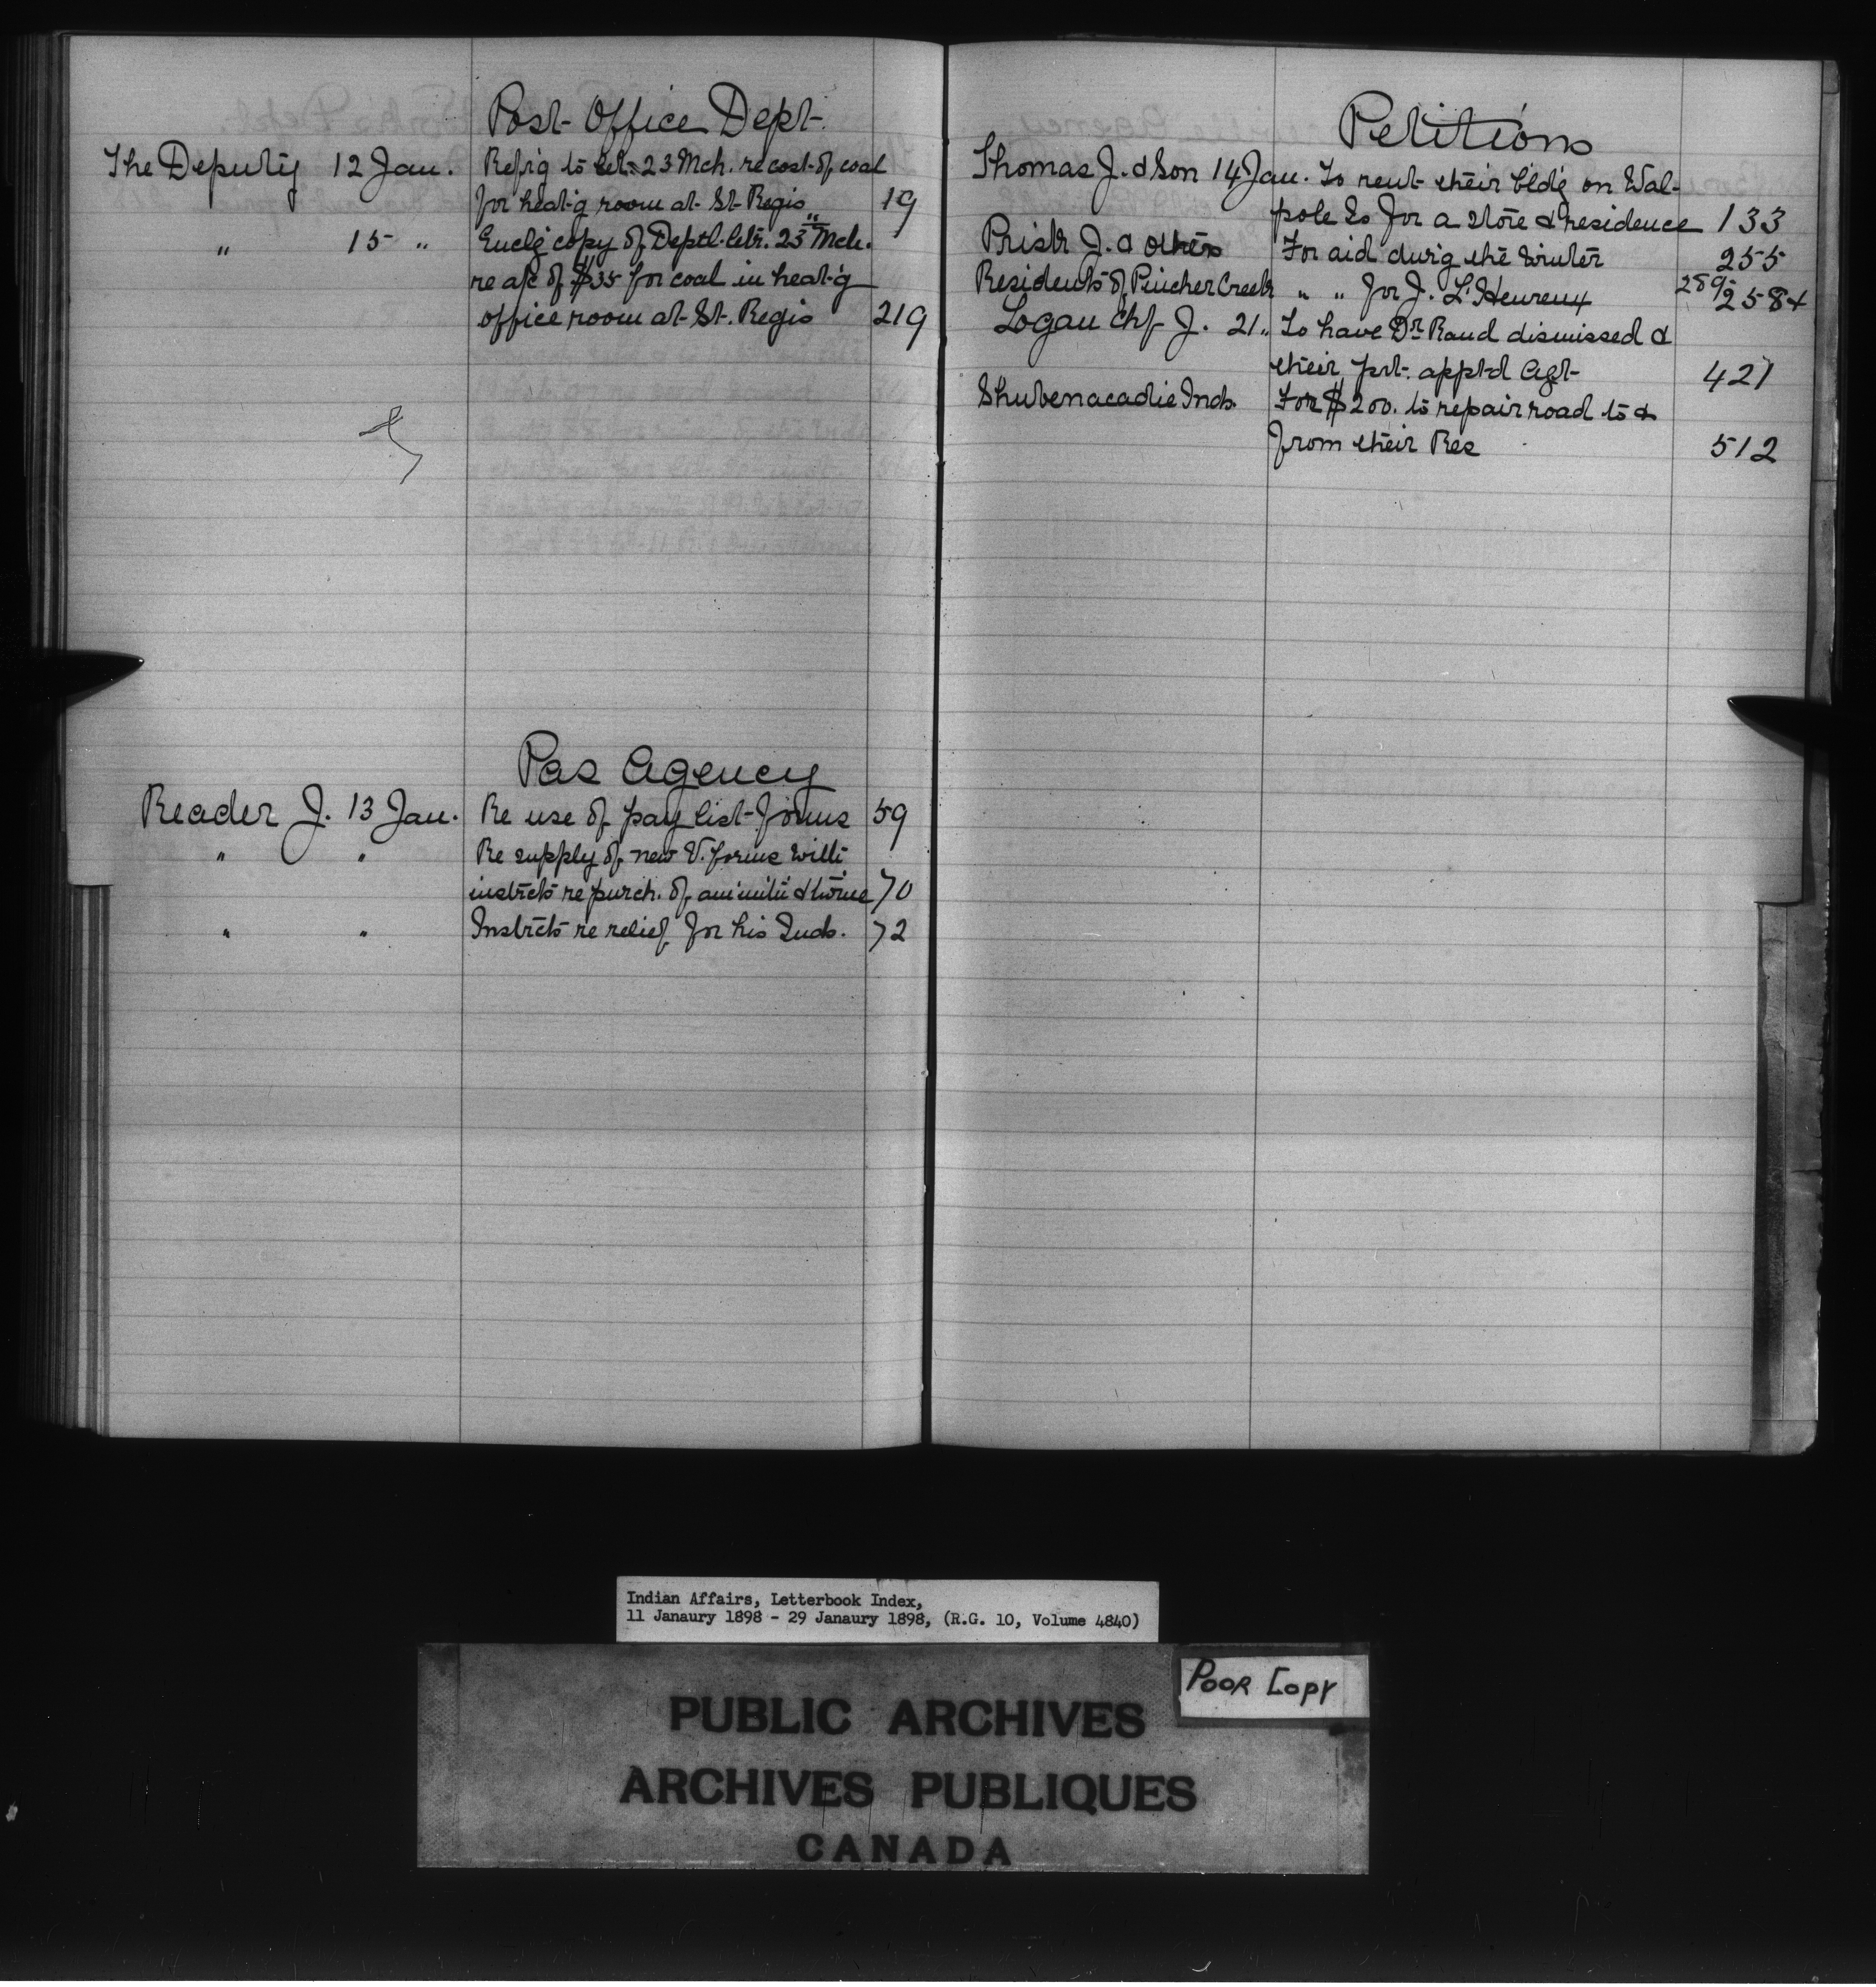 Post Office Dept.
The Deputy 12 Jan. Refr'g to let. 23 Mch. re cost of coal
for heat-g room at St Regis 19
" 15 " Encl'g copy of Deptl. letr. 23rd Mch.
re a/c of $35 for coal in heat-g
office room at St. Regis 219
Pas Agency
Reader J. 13 Jan. Re use of pay list forms 59
" " Re supply of new V. forms with
instrcts re purch. of am'mit'n & twine 70
" " Instrcts re relief for his Inds. 72
Petitions
Thomas J. & Son 14 Jan. To rent their bldg on Wal-
pole Is for a store & residence 133
J. & others For aid dur'g the winter 255
Residents of Pincher Creek " " for J. L'Heureux 289 258+
Logan Chf J. 21 " To have Dr. Rand dismissed &
their prt. appt-d Agt 427
Shubenacadie Inds. For $200. to repair road to &
from their Res 512
Indian Affairs, Letterbook Index,
11 Janaury 1898 - 29 Janaury 1898, (R.G. 10, Volume 4840)
POOR COPY
PUBLIC ARCHIVES
ARCHIVES PUBLIQUES
CANADA